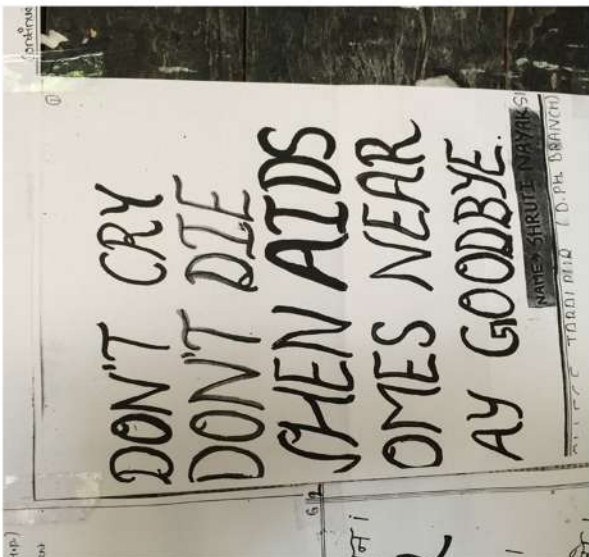 DON'T CRY
DON'T DIE
WHEN AIDS
OMES NEAR
AY GOODBYE.
NAME→SHRUTI NAYAK
(D.PH. BRANCH)